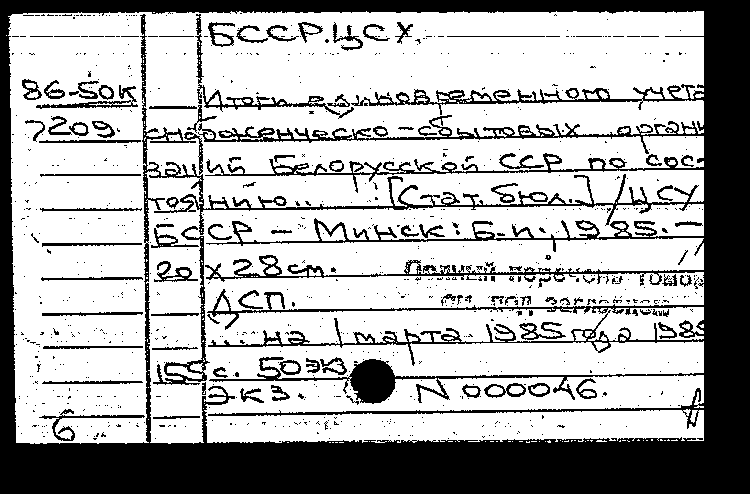 БССР.ЦСУ.
86-50к
7209.
Итоги единовременного учета
снабженческо-сбытовых органи
заций Белорусской ССР по сос-
тоянию... [Стат. бюл.] / ЦСУ
БССР. - Минск: Б.и., 1985. -
20 х 28 см. Полный перечень томов
см. под заглавием
ДСП.
... на 1 марта 1985 года 1985
155 с. 50 экз
Экз. N 000046.
6